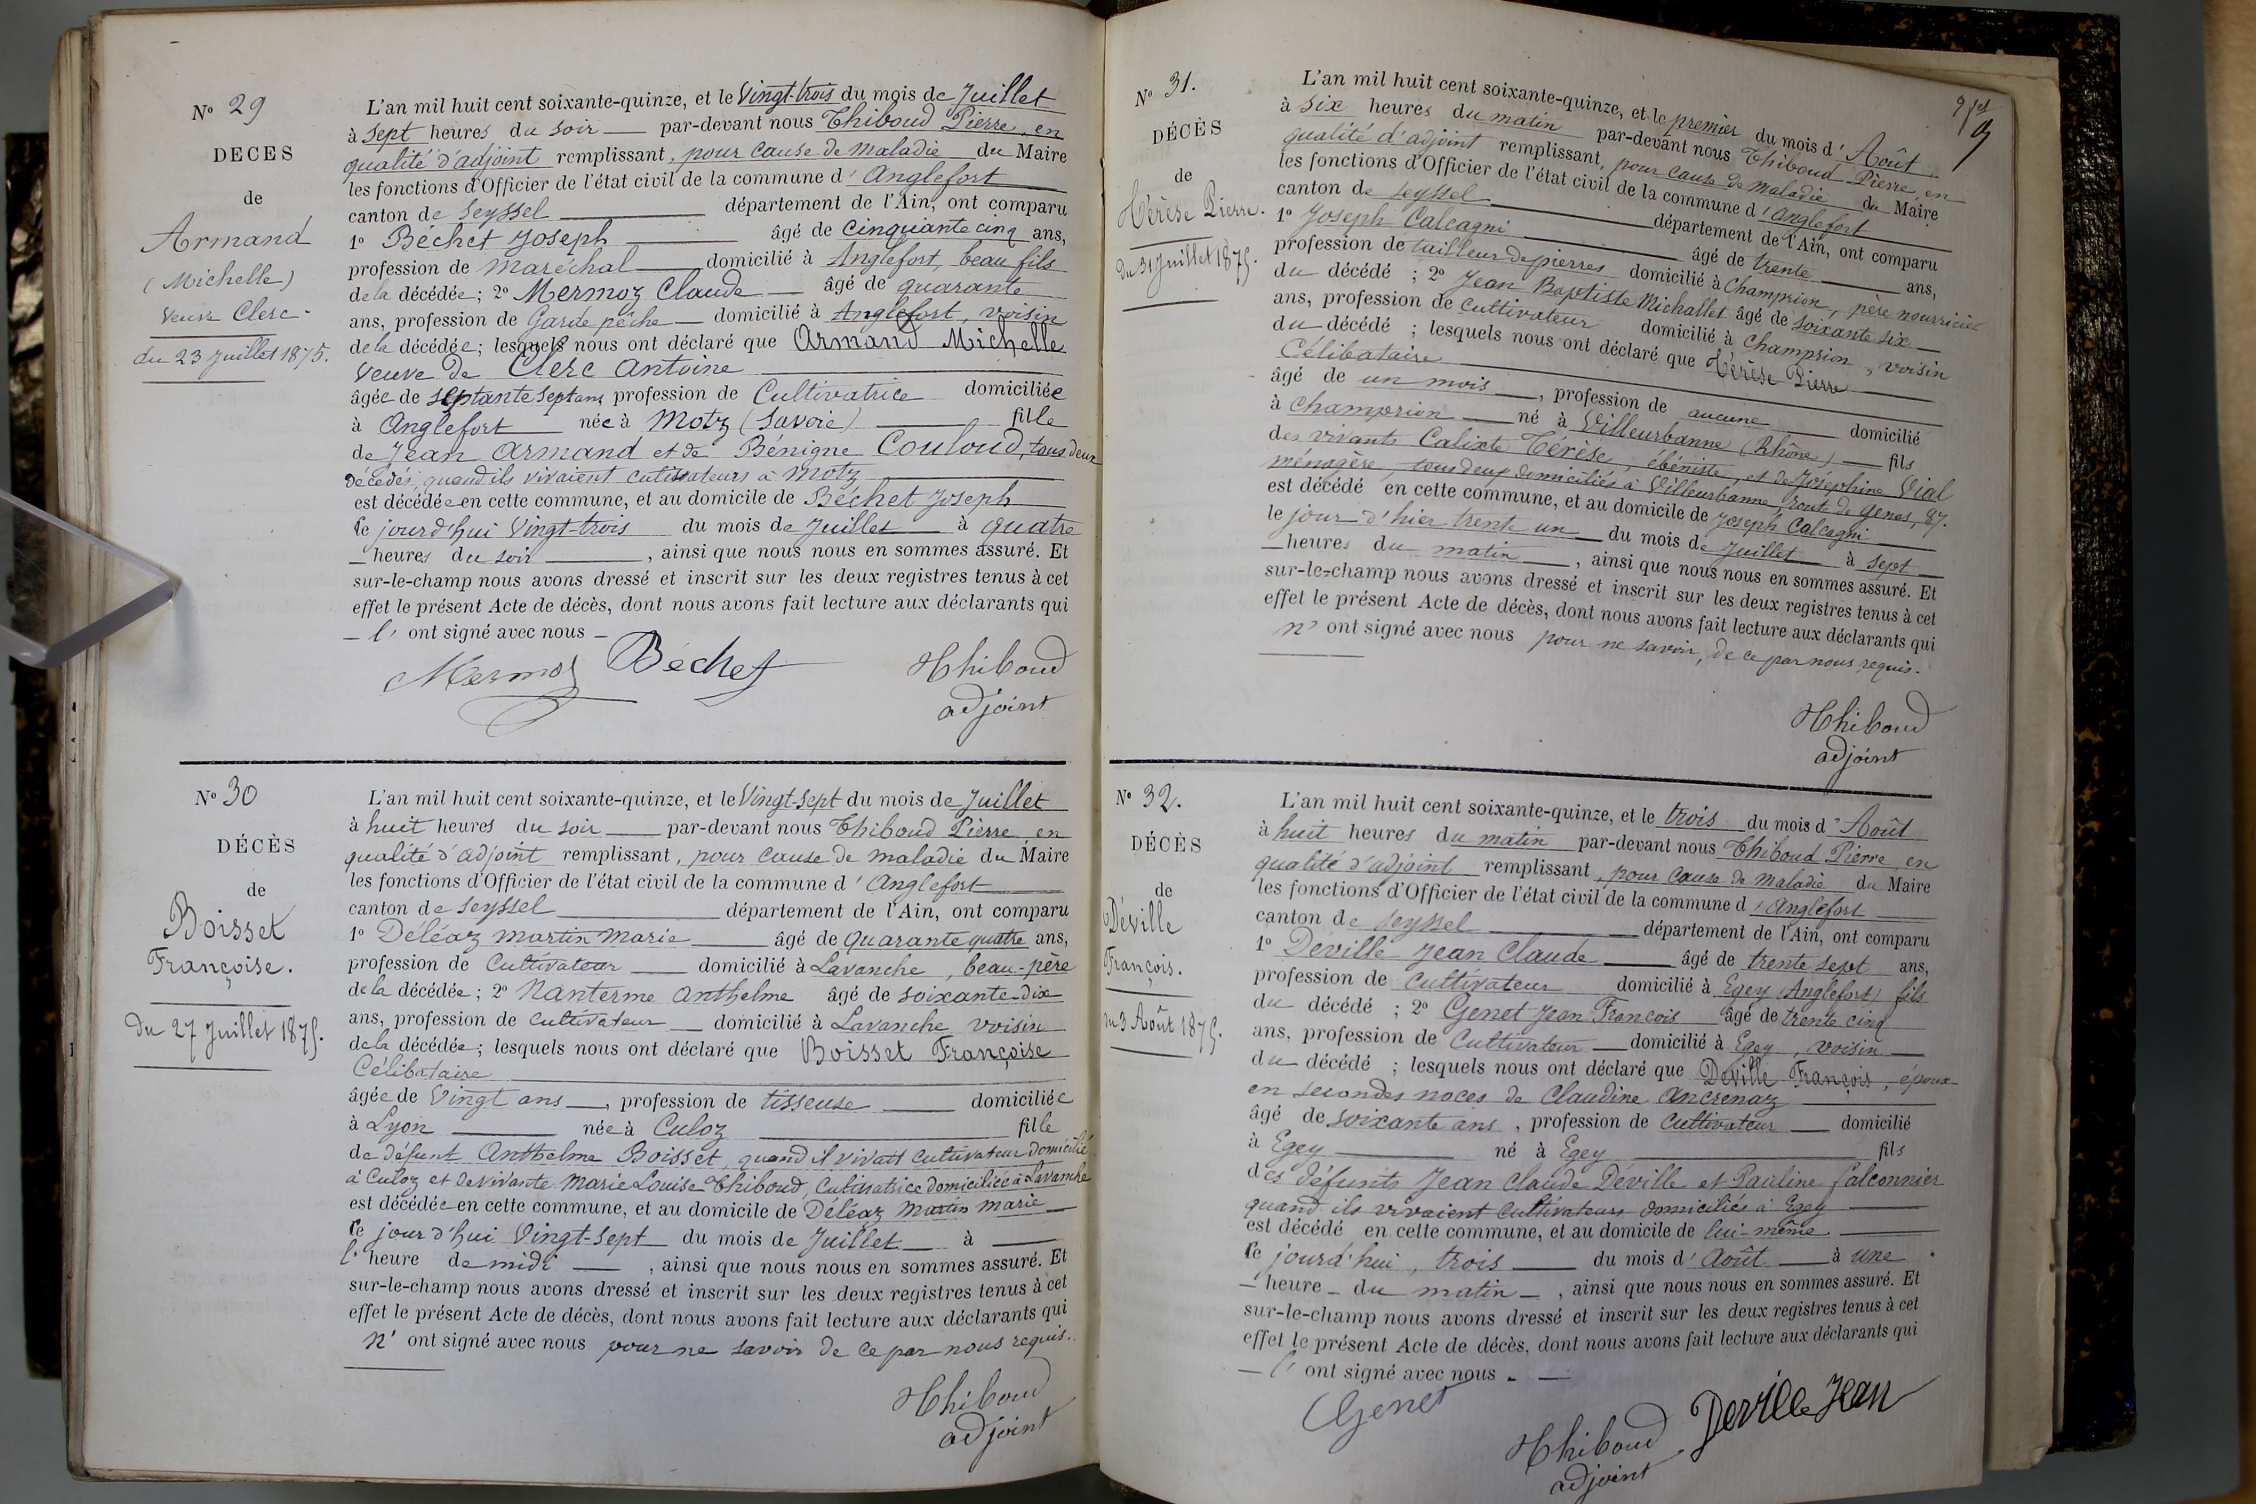 Nº 29
DÉCÈS
de
Armand
(Michelle)
Veuve Clerc.
du 23 Juillet 1875.
L'an mil huit cent soixante-quinze, et le Vingt-trois du mois de Juillet
à sept heures du soir par-devant nous Thiboud Pierre, en
qualité d'adjoint remplissant, pour cause de maladie du Maire
les fonctions d'Officier de l'état civil de la commune d'Anglefort
canton de Seyssel département de l'Ain, ont comparu
1º Béchet Joseph âgé de Cinquante cinq ans,
profession de Maréchal domicilié à Anglefort, beau fils
de la décédée; 2º Mermoz Claude âgé de quarante
ans, profession de Garde pêche domicilié à Anglefort, voisin
de la décédée; lesquels nous ont déclaré que Armand Michelle
Veuve de Clerc Antoine
âgée de septante sept ans profession de Cultivatrice domiciliée
à Anglefort née à Motz (Savoie) fille
de Jean Armand et de Bénigne Couloud, tous deux
décédés, quand ils vivaient cultivateurs à Motz
est décédée en cette commune, et au domicile de Béchet Joseph
ce jourd'hui Vingt-trois du mois de Juillet à quatre
heures du soir, ainsi que nous nous en sommes assuré. Et
sur-le-champ nous avons dressé et inscrit sur les deux registres tenus à cet
effet le présent Acte de décès, dont nous avons fait lecture aux déclarants qui
l'ont signé avec nous
Mermoz Béchet Thiboud
adjoint
Nº 30
DÉCÈS
de
Boisset
Françoise.
du 27 Juillet 1875.
L'an mil huit cent soixante-quinze, et le Vingt-sept du mois de Juillet
à huit heures du soir par-devant nous Thiboud Pierre en
qualité d'adjoint remplissant, pour cause de maladie du Maire
les fonctions d'Officier de l'état civil de la commune d'Anglefort
canton de Seyssel département de l'Ain, ont comparu
1º Déléaz Martin Marie âgé de Quarante quatre ans,
profession de Cultivateur domicilié à Lavanche, beau-père
de la décédée; 2º Nanterme Anthelme âgé de soixante-dix
ans, profession de Cultivateur domicilié à Lavanche voisin
de la décédée; lesquels nous ont déclaré que Boisset Françoise
Célibataire
âgée de Vingt ans, profession de tisseuse domiciliée
à Lyon née à Culoz fille
de défunt Anthelme Boisset, quand il vivait cultivateur domicilié
à Culoz et de vivante Marie Louise Thiboud, Cultivatrice domiciliée à Lavanche
est décédée en cette commune, et au domicile de Déléaz Martin Marie
ce jourd'hui Vingt-sept du mois de Juillet à
l'heure de midi, ainsi que nous nous en sommes assuré. Et
sur-le-champ nous avons dressé et inscrit sur les deux registres tenus à cet
effet le présent Acte de décès, dont nous avons fait lecture aux déclarants qui
n'ont signé avec nous pour ne savoir de ce par nous requis.
Thiboud
adjoint
Nº 31.
DÉCÈS
de
Térèse Pierre.
du 31 Juillet 1875.
L'an mil huit cent soixante-quinze, et le premier du mois d'Août
à six heures du matin par-devant nous Thiboud Pierre, en
qualité d'adjoint remplissant, pour cause de maladie du Maire
les fonctions d'Officier de l'état civil de la commune d'Anglefort
canton de Seyssel département de l'Ain, ont comparu
1º Joseph Calcagni âgé de trente ans,
profession de tailleur de pierres domicilié à Champrion, père nourricier
du décédé; 2º Jean Baptiste Michallet âgé de soixante six
ans, profession de cultivateur domicilié à Champrion, voisin
du décédé; lesquels nous ont déclaré que Térèse Pierre
Célibataire
âgé de un mois, profession de aucune domicilié
à Champrion né à Villeurbanne (Rhône) fils
des vivants Calixte Térèse, ébéniste, et de Joséphine Vial
ménagère, tous deux domiciliés à Villeurbanne, route de Genas, 87.
est décédé en cette commune, et au domicile de Joseph Calcagni
le jour d'hier trente un du mois de Juillet à sept
heures du matin, ainsi que nous nous en sommes assuré. Et
sur-le-champ nous avons dressé et inscrit sur les deux registres tenus à cet
effet le présent Acte de décès, dont nous avons fait lecture aux déclarants qui
n'ont signé avec nous pour ne savoir, de ce par nous requis.
Thiboud
adjoint
Nº 32.
DÉCÈS
de
Déville
François.
du 3 Août 1875.
L'an mil huit cent soixante-quinze, et le trois du mois d'Août
à huit heures du matin par-devant nous Thiboud Pierre en
qualité d'adjoint remplissant, pour cause de maladie du Maire
les fonctions d'Officier de l'état civil de la commune d'Anglefort
canton de Seyssel département de l'Ain, ont comparu
1º Déville Jean Claude âgé de trente sept ans,
profession de Cultivateur domicilié à Egey (Anglefort) fils
du décédé; 2º Genet Jean François âgé de trente cinq
ans, profession de Cultivateur domicilié à Egey, voisin
du décédé; lesquels nous ont déclaré que Déville François, époux
en secondes noces de Claudine Ancrenaz
âgé de soixante ans, profession de Cultivateur domicilié
à Egey né à Egey fils
des défunts Jean Claude Déville et Pauline Falconnier
quand ils vivaient Cultivateurs domiciliés à Egey
est décédé en cette commune, et au domicile de lui-même
ce jourd'hui, trois du mois d'Août à une
heure du matin, ainsi que nous nous en sommes assuré. Et
sur-le-champ nous avons dressé et inscrit sur les deux registres tenus à cet
effet le présent Acte de décès, dont nous avons fait lecture aux déclarants qui
l'ont signé avec nous.
Genet Thiboud Deville Jean
adjoint